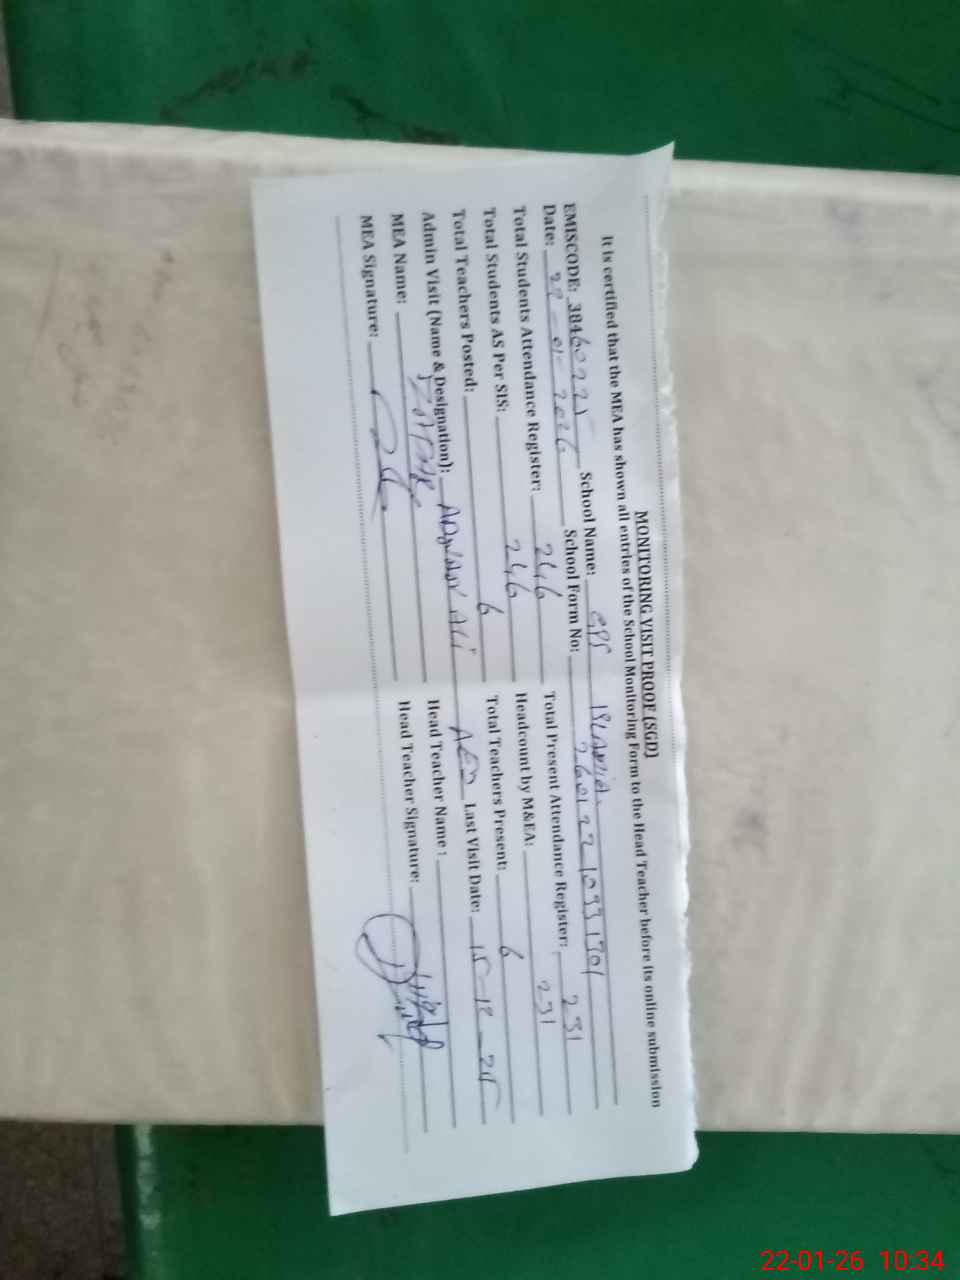 MONITORING VISIT PROOF (SGD)
It is certified that the MEA has shown all entries of the School Monitoring Form to the Head Teacher before its online submission
EMISCODE: 38460225 School Name: GPS ISLAMIA
Date: 22-01-2026 School Form No:
Total Students Attendance Register: 246 Total Present Attendance Register: 231
Total Students AS Per SIS: 246 Headcount by M&EA: 231
Total Teachers Posted: 6 Total Teachers Present: 6
Admin Visit (Name & Designation): ADNAN ALI AEO Last Visit Date: 15-12-25
MEA Name: Head Teacher Name:
MEA Signature: Head Teacher Signature:
22-01-26 10:34